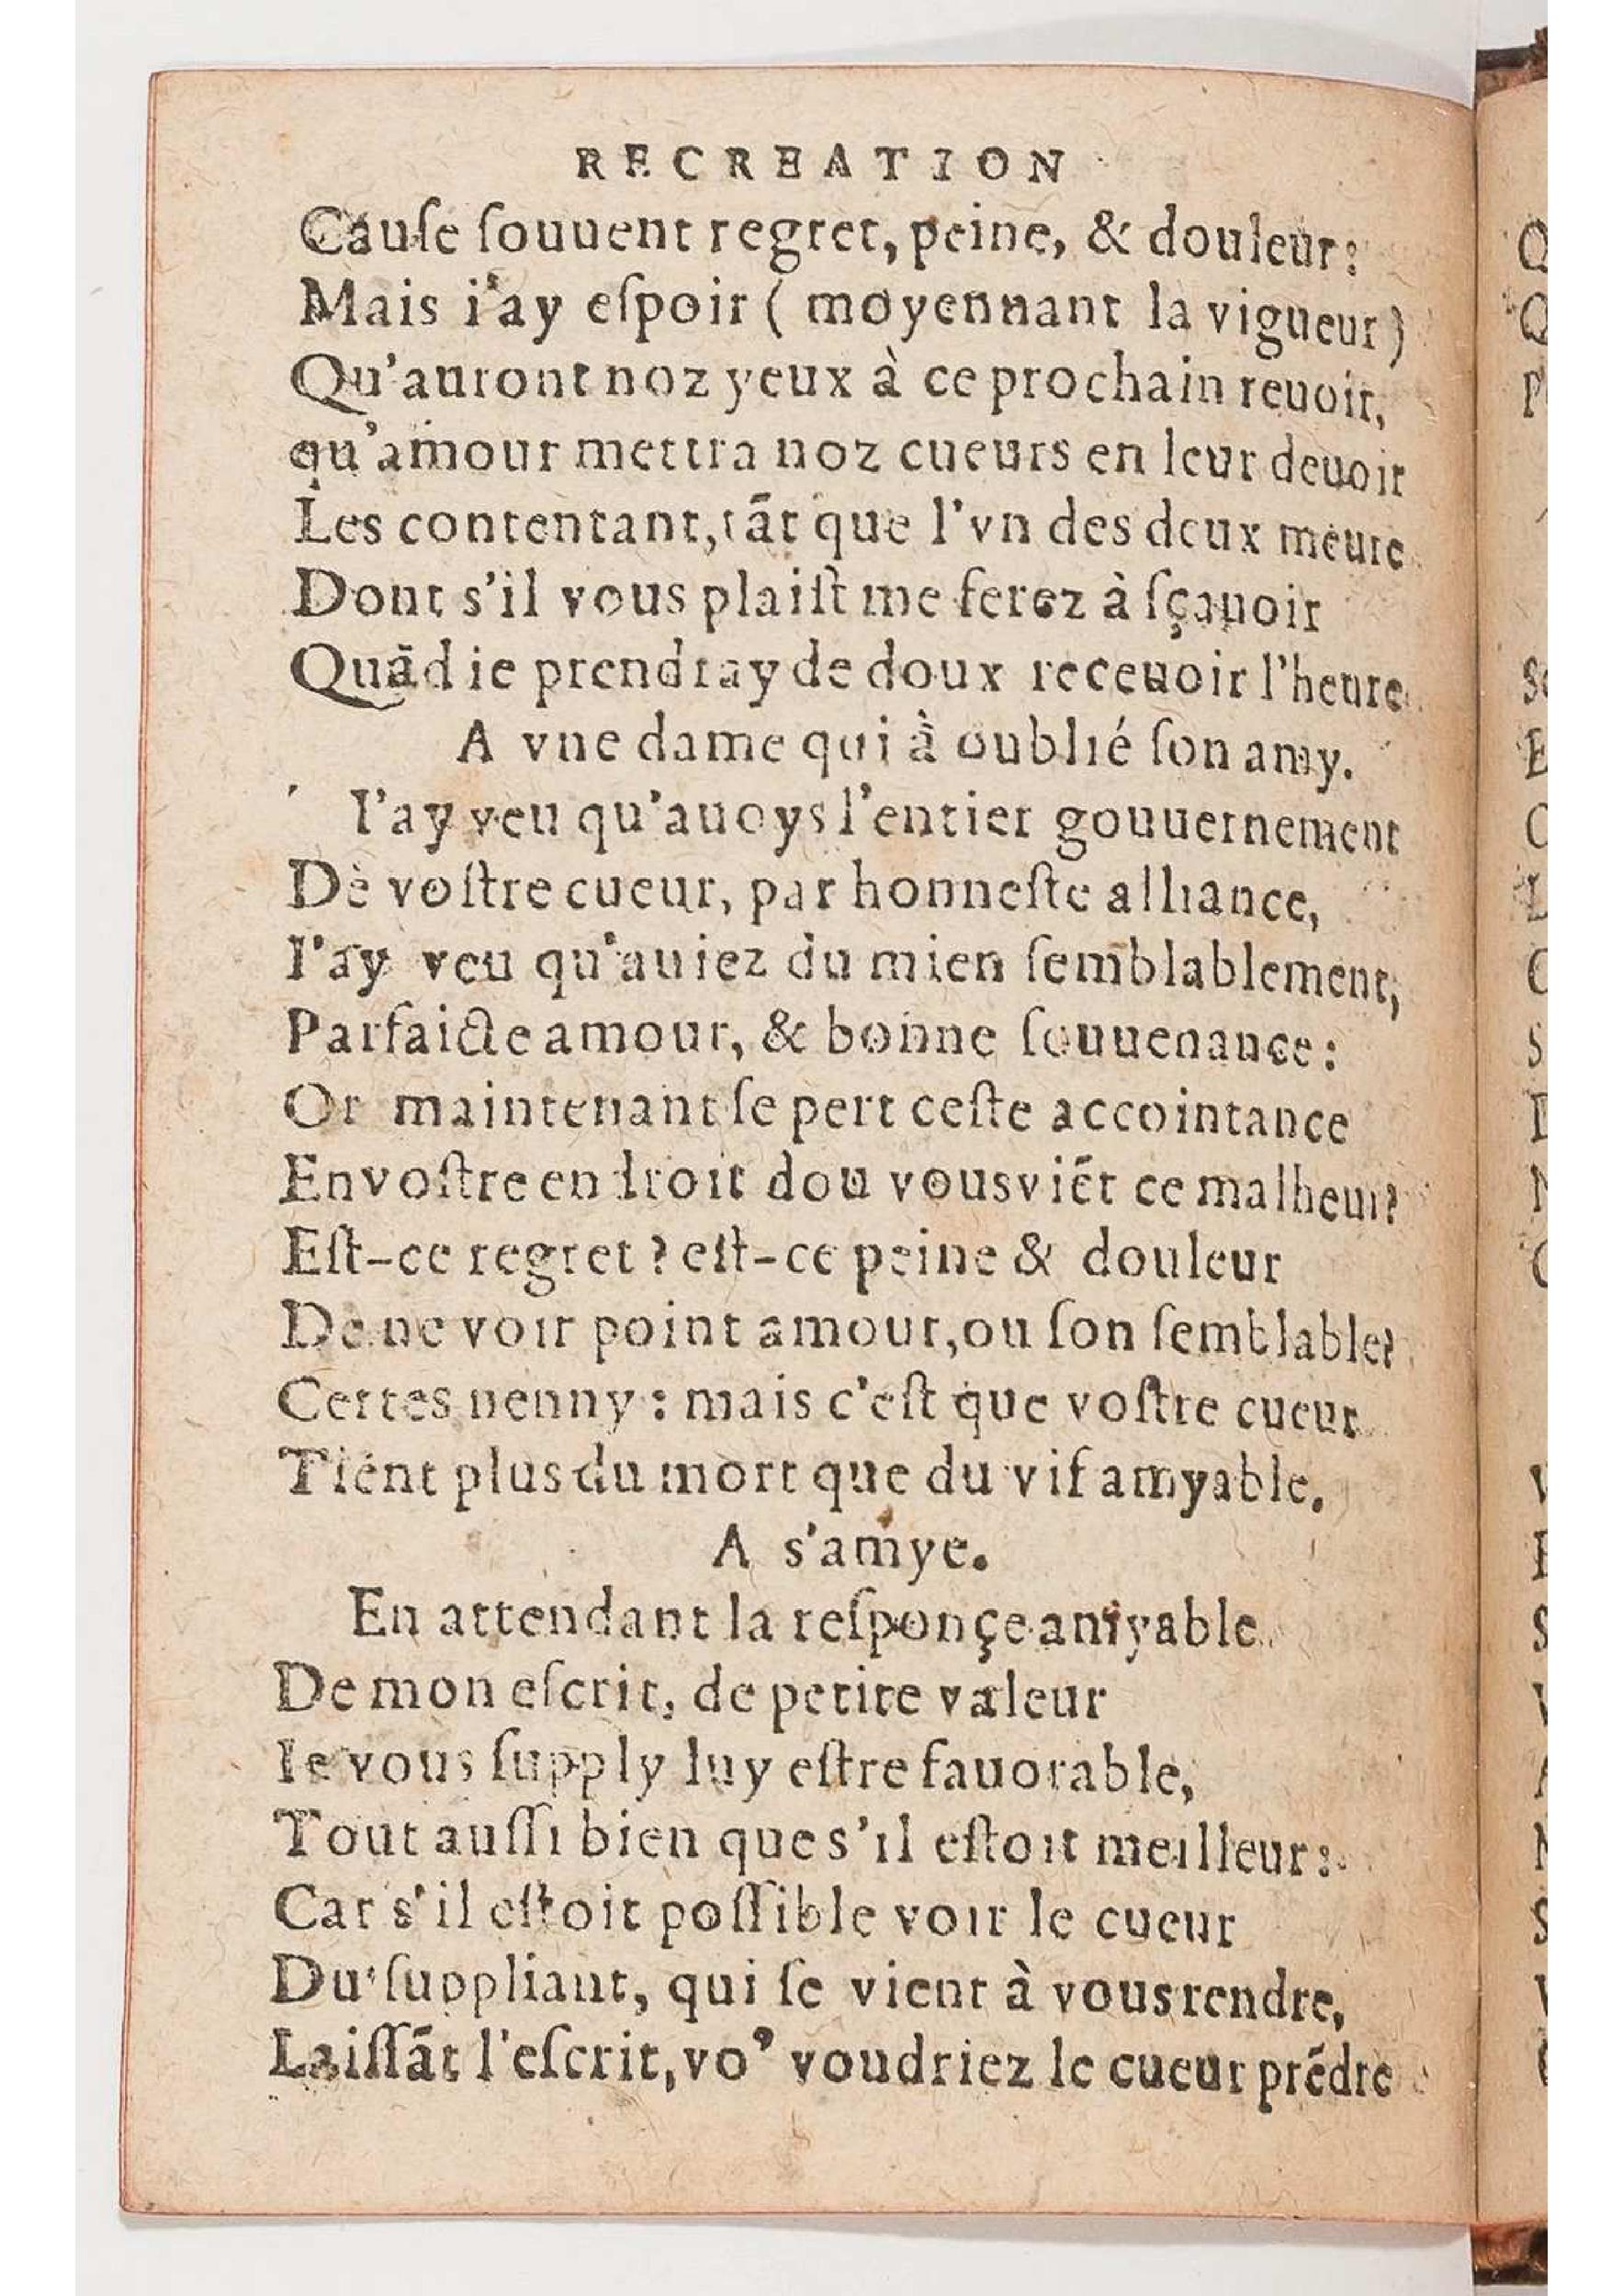 RECREATION
Cauſe ſouuent regret, peine, & douleur:
Mais i'ay eſpoir ( moyennant la vigueur)
Qu'auront noz yeux à ce prochain reuoir,
qu'amour mettra noz cueurs en leur deuoir
Les contentant, tāt que l'vn des deux meure
Dont s'il vous plaiſt me ferez à ſçauoir
Quād ie prendray de doux receuoir l'heure
A vne dame qui à oublié ſon amy.
I'ay veu qu'auoys l'entier gouuernement
De voſtre cueur, par honneſte alliance,
I'ay veu qu'auiez du mien ſemblablement,
Parfaicte amour, & bonne ſouuenance:
Or maintenant ſe pert ceſte accointance
En voſtre endroit dou vous viēt ce malheur?
Eſt-ce regret? eſt-ce peine & douleur
De ne voir point amour, ou ſon ſemblable?
Certes nenny: mais c'eſt que voſtre cueur
Tient plus du mort que du vif amyable.
A s'amye.
En attendant la reſponçe amyable
De mon eſcrit, de petite valeur
Ie vous ſupply luy eſtre fauorable,
Tout auſſi bien que s'il eſtoit meilleur:
Car s'il eſtoit poſſible voir le cueur
Du ſuppliant, qui ſe vient à vous rendre,
Laiſſāt l'eſcrit, vo' voudriez le cueur prēdre